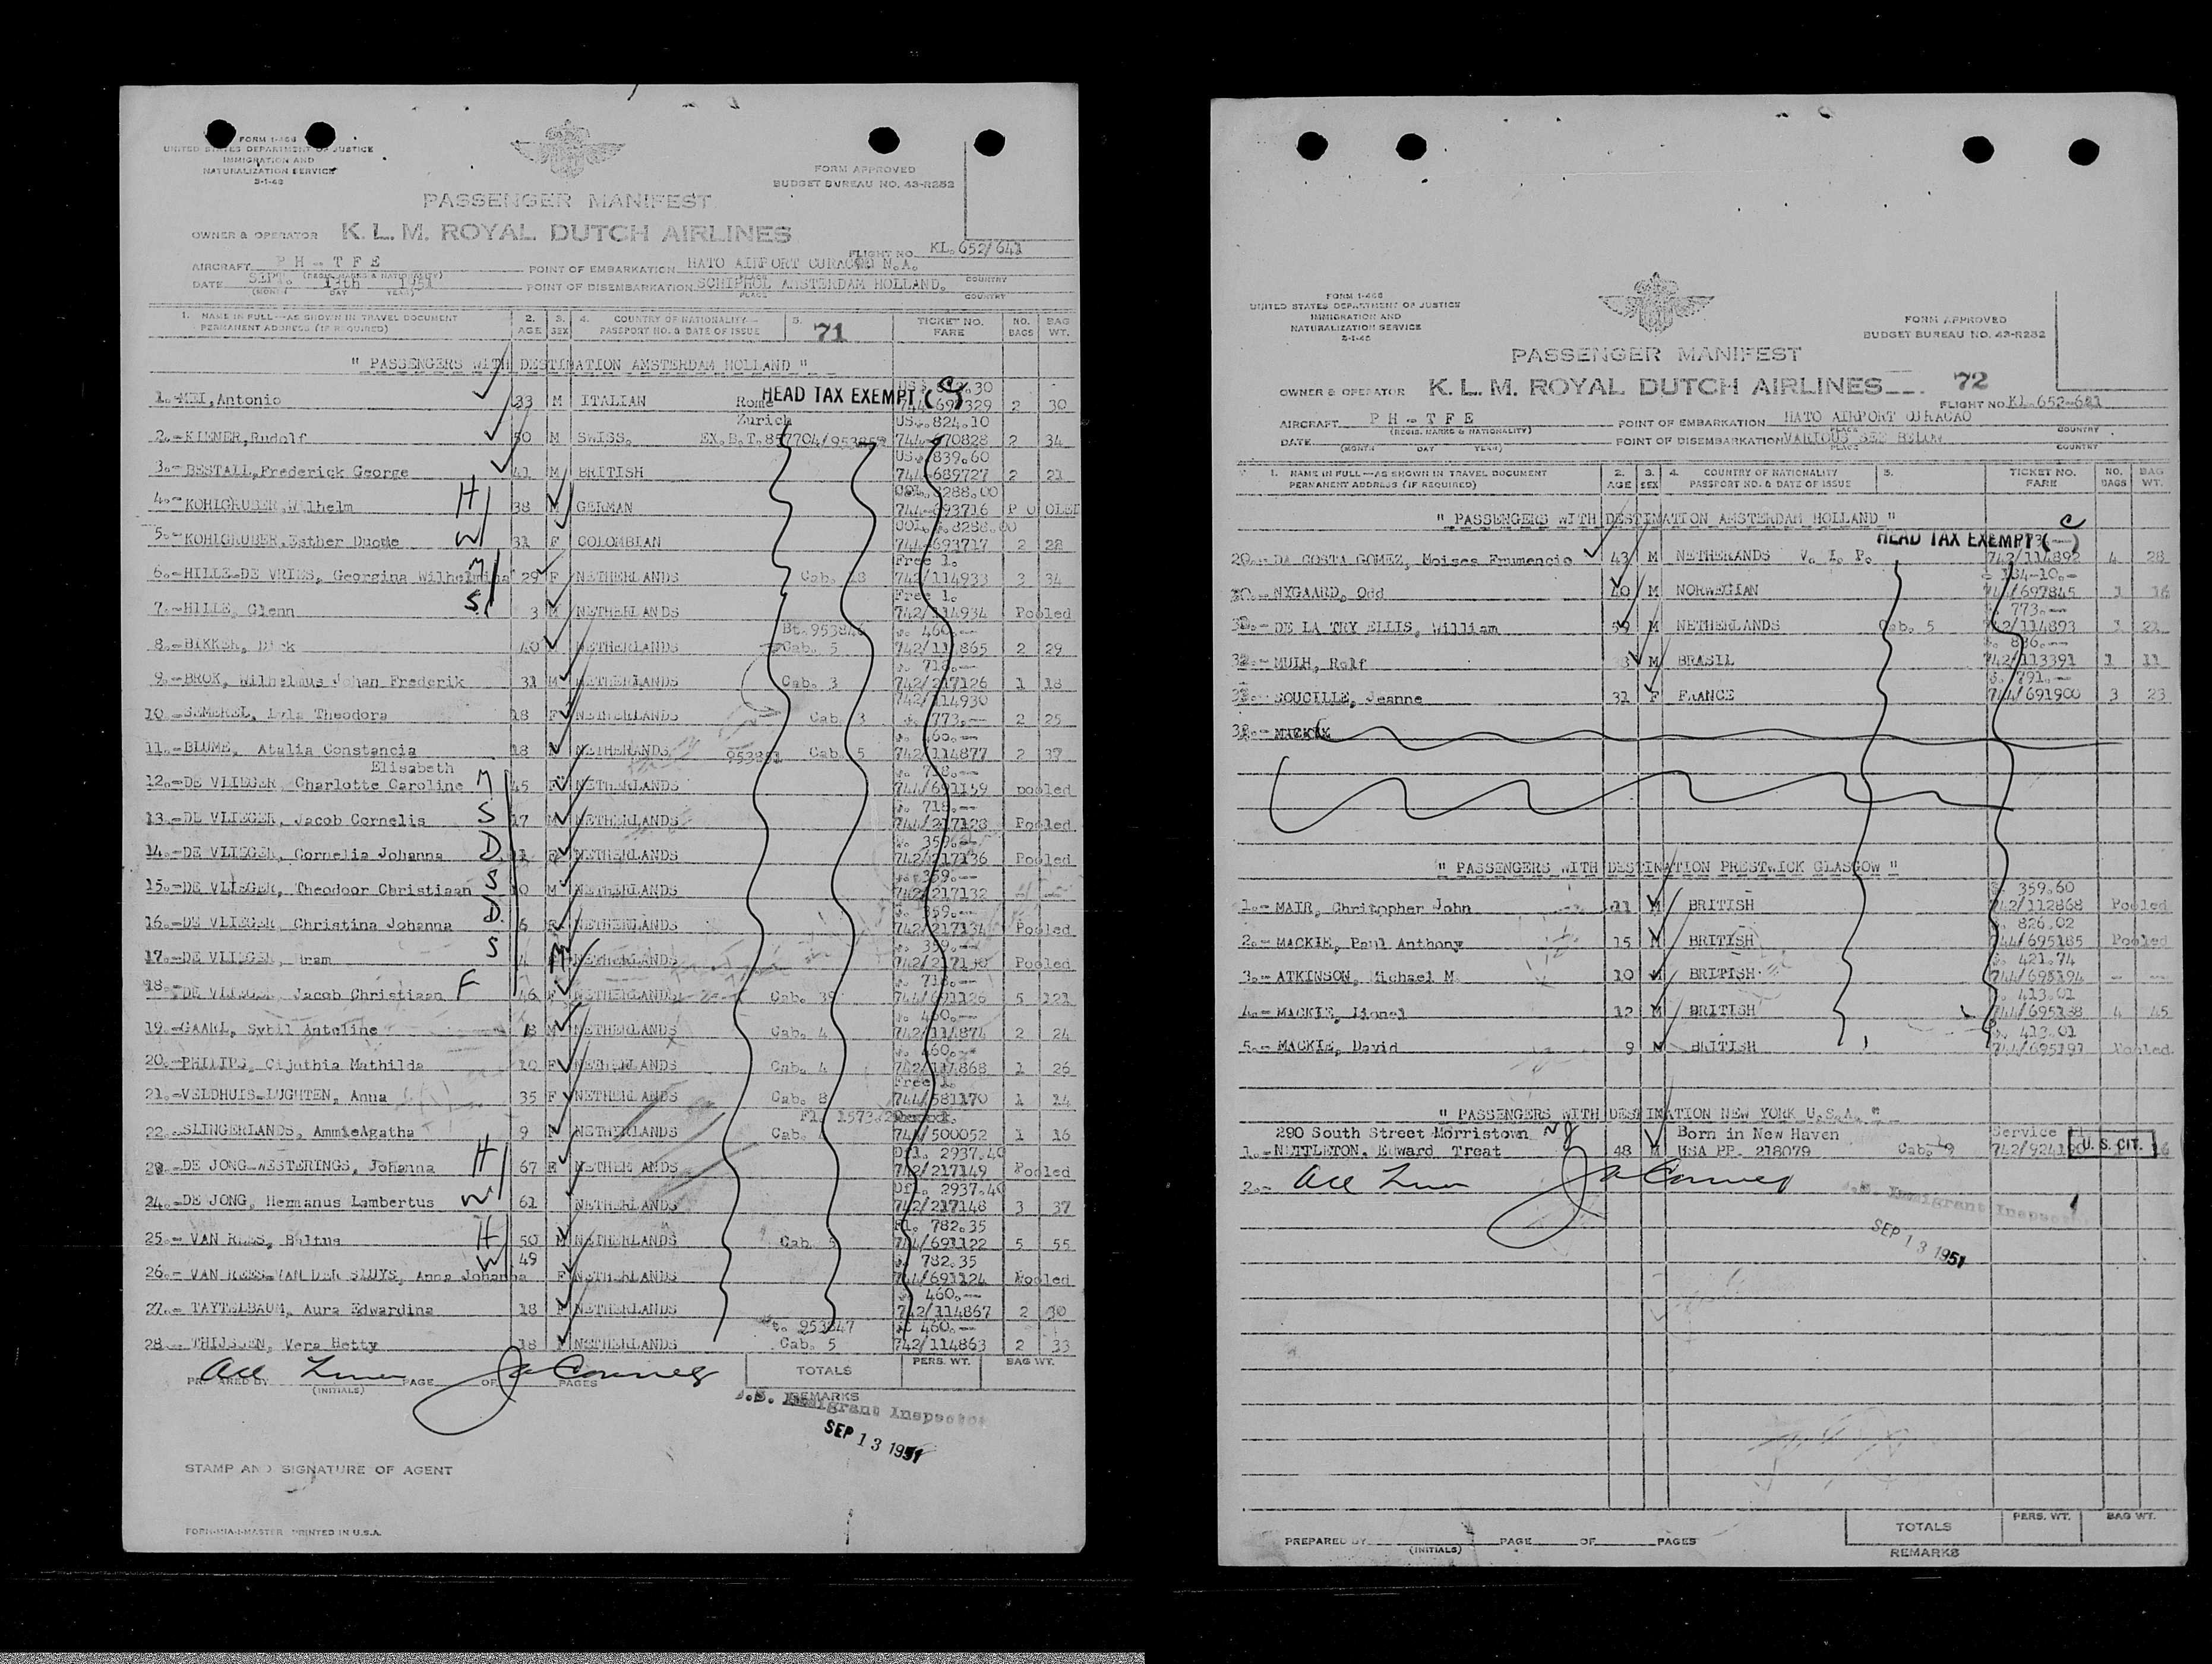 FORM I-466
UNITED STATES DEPARTMENT OF JUSTICE
IMMIGRATION AND
NATURALIZATION SERVICE
FORM APPROVED
BUDGET BUREAU NO. 43-R252
PASSENGER MANIFEST
OWNER & OPERATOR K. L. M. ROYAL DUTCH AIRLINES
FLIGHT NO. KL. 652/641
AIRCRAFT P H - T F E
(REGIS. MARKS & NATIONALITY)
POINT OF EMBARKATION HATO AIRPORT CURACAO N.A.
PLACE COUNTRY
DATE SEPT. 13th 1951
(MONTH DAY YEAR)
POINT OF DISEMBARKATION SCHIPHOL AMSTERDAM HOLLAND.
PLACE COUNTRY
1. NAME IN FULL—AS SHOWN IN TRAVEL DOCUMENT 2. 3. 4. COUNTRY OF NATIONALITY— 5. TICKET NO. NO. BAG
PERMANENT ADDRESS (IF REQUIRED) AGE SEX PASSPORT NO. & DATE OF ISSUE 71 FARE BAGS WT.
" PASSENGERS WITH DESTINATION AMSTERDAM HOLLAND "
HEAD TAX EXEMPT (C)
1.-MEI, Antonio 33 M ITALIAN Rome 2 30
Zurich US. 824.10
2.-KIENER, Rudolf 50 M SWISS. EX.B.T. 2 34
US. 839.60
3.-BESTALL, Frederick George 41 M BRITISH 744-689727 2 21
8288.00
4.-KOHLGRUBER, Wilhelm H 38 M GERMAN 744-693716 P O OLED
COL. 8288.00
5.-KOHLGRUBER, Esther Duque W 31 F COLOMBIAN 744-693717 2 28
Free 1.
6.-HILLE-DE VRIES, Georgina Wilhelmina M 29 F NETHERLANDS 742/114933 3 34
Free 1.
7.-HILLE, Glenn S. 3 M NETHERLANDS 742/114934 Pooled
460.--
8.-BIKKER, Dick 40 NETHERLANDS Cab. 5 2 29
718.--
9.-BROK, Wilhelmus Johan Frederik 31 M NETHERLANDS Cab. 3 742/217126 1 18
742/114930
10.-SEMEREL, Theodora 18 F NETHERLANDS Cab. 3 773.-- 2 25
460.--
11.-BLUME, Atalia Constancia 18 NETHERLANDS Cab. 5 742/114877 2 37
Elisabeth 718.--
12.-DE VLIEGER, Charlotte Caroline M 45 F NETHERLANDS 744/691159 pooled
718.--
13.-DE VLIEGER, Jacob Cornelis S 17 M NETHERLANDS 744/217128 Pooled
359.--
14.-DE VLIEGER, Cornelia Johanna D. NETHERLANDS 742/217136 Pooled
359.--
15.-DE VLIEGER, Theodoor Christiaan S M NETHERLANDS 742/217132
359.--
16.-DE VLIEGER, Christina Johanna D. 6 F NETHERLANDS 742/217134 Pooled
359.--
17.-DE VLIEGER, Bram S 4 M NETHERLANDS Pooled
718.--
18.-DE VLIEGER, Jacob Christiaan F 46 NETHERLANDS Cab. 744/691126 5 121
460.--
19.-GAARI, Sybil Anteline 18 M NETHERLANDS Cab. 4 742/114874 2 24
460.--
20.-PHILIPS, Cijnthia Mathilda 10 F NETHERLANDS Cab. 4 742/114868 1 26
Free 1.
21.-VELDHUIS-LUGHTEN, Anna 35 F NETHERLANDS Cab. 8 744/581170 1 14
22.-SLINGERLANDS, AmmieAgatha 9 NETHERLANDS Cab. 744/500052 1 16
Dfl. 2937.40
23.-DE JONG-WESTERINGS, Johanna H 67 F NETHERLANDS 742/217149 Pooled
Dfl. 2937.40
24.-DE JONG, Hermanus Lambertus W 61 NETHERLANDS 742/217148 3 37
Fl. 782.35
25.- VAN REES, Baltus H 50 M NETHERLANDS Cab. 5 744/691122 5 55
W 49 782.35
26.- VAN REES-VAN DER SLUYS, Anna Johanna F NETHERLANDS 744/691124 Pooled
460.--
27.- TAYTELBAUM, Aura Edwardina 18 F NETHERLANDS 742/114867 2 30
953847 460.--
28.- THIJSSEN, Vera Hetty 18 F NETHERLANDS Cab. 5 742/114863 2 33
PREPARED BY (INITIALS) PAGE OF PAGES
TOTALS PERS. WT. BAG WT.
REMARKS
U.S. Immigrant Inspector
SEP 13 1951
STAMP AND SIGNATURE OF AGENT
FORM-MIA-1-MASTER PRINTED IN U.S.A.
FORM I-466
UNITED STATES DEPARTMENT OF JUSTICE
IMMIGRATION AND
NATURALIZATION SERVICE
FORM APPROVED
BUDGET BUREAU NO. 43-R252
PASSENGER MANIFEST
OWNER & OPERATOR K. L. M. ROYAL DUTCH AIRLINES 72
FLIGHT NO. KL. 652-641
AIRCRAFT P H - T F E
(REGIS. MARKS & NATIONALITY)
POINT OF EMBARKATION HATO AIRPORT CURACAO
PLACE COUNTRY
DATE
(MONTH DAY YEAR)
POINT OF DISEMBARKATION VARIOUS SEE BELOW
PLACE COUNTRY
1. NAME IN FULL—AS SHOWN IN TRAVEL DOCUMENT 2. 3. 4. COUNTRY OF NATIONALITY 5. TICKET NO. NO. BAG
PERMANENT ADDRESS (IF REQUIRED) AGE SEX PASSPORT NO. & DATE OF ISSUE FARE BAGS WT.
" PASSENGERS WITH DESTINATION AMSTERDAM HOLLAND "
HEAD TAX EXEMPT (C)
DA COSTA GOMEZ, Moises Frumencio 43 M NETHERANDS V. I. P. 742/114892 4 28
134-10.-
30.- NYGAARD, Odd 40 M NORWEGIAN 744/697845 1 16
773.--
DE LA TRY ELLIS, William 59 M NETHERLANDS Cab. 5 742/114893 1 21
836.--
MULH, Rolf M BRASIL 742/113391 1 11
791.--
SOUCILLE, Jeanne 31 F FRANCE 744/691900 3 23
MACKIE
" PASSENGERS WITH DESTINATION PRESTWICK GLASGOW "
359.60
1.- MAIR, Chritopher John 11 M BRITISH 742/112868 Pooled
826.02
2.- MACKIE, Paul Anthony 15 M BRITISH 744/695185 Pooled
421.74
3.- ATKINSON, Michael M. 10 M BRITISH 744/695194 - --
413.01
4.- MACKIE, Lionel 12 M BRITISH 744/695188 4 45
413.01
5.- MACKIE, David 9 M BRITISH 744/695191 Pooled
" PASSENGERS WITH DESTINATION NEW YORK U.S.A. "
290 South Street Morristown NJ Born in New Haven Service
1.- NETTLETON, Edward Treat 48 M USA PP. 218079 Cab. U. S. CIT.
2.-
U.S. Immigrant Inspector
SEP 13 1951
PREPARED BY (INITIALS) PAGE OF PAGES
TOTALS PERS. WT. BAG WT.
REMARKS